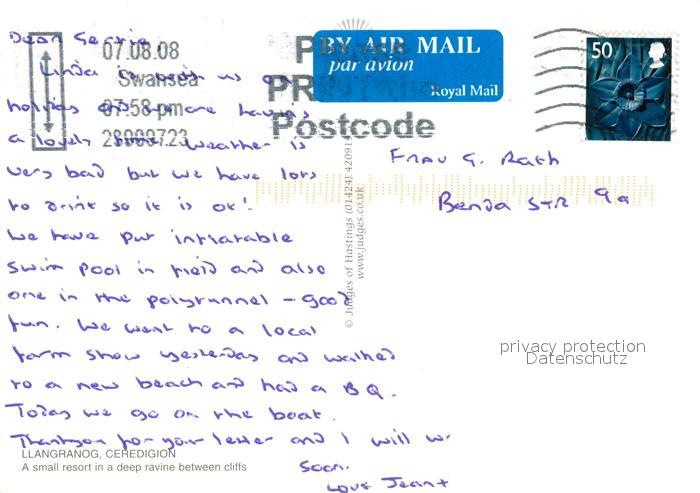 Dear Gerrie,
Linda is with us on
holiday and we are having
a lovely time weather is
very bad but we have lots
to drink so it is ok!
We have put inflatable
swim pool in field and also
one in the polytunnel – good
fun. We went to a local
farm show yesterday and walked
to a new beach and had a BQ.
Today we go on the boat.
Thankyou for your letter and I will w
soon.
Love Jean +
LLANGRANOG, CEREDIGION
A small resort in a deep ravine between cliffs
07.08.08
Swansea
07:58 pm
28009723
Postcode
BY AIR MAIL
par avion
Royal Mail
50
Frau G. Rath
Benda Str 9a
© Judges of Hastings (01424) 42091
www.judges.co.uk
privacy protection
Datenschutz